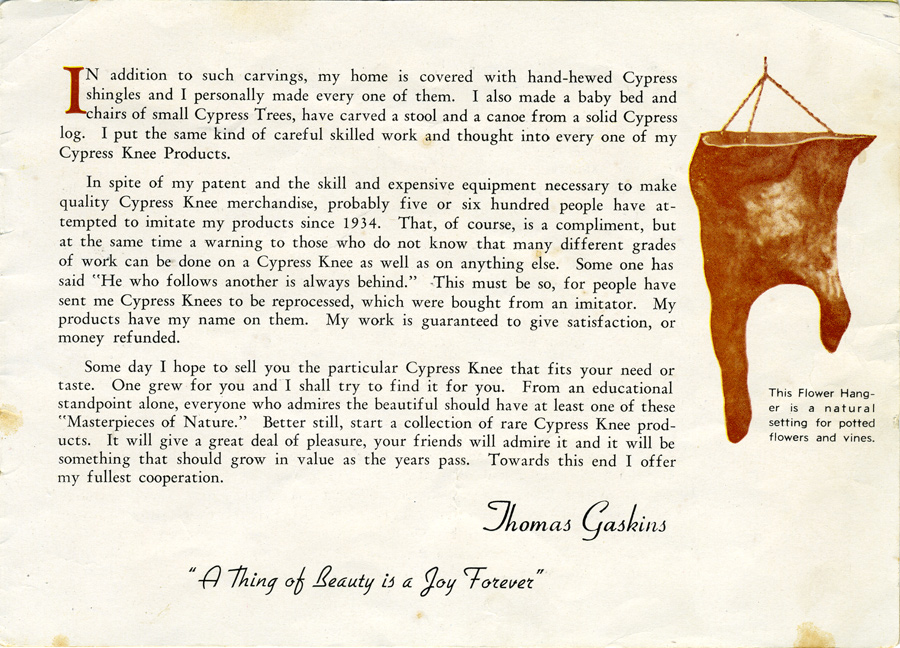 IN addition to such carvings, my home is covered with hand-hewed Cypress
shingles and I personally made every one of them. I also made a baby bed and
chairs of small Cypress Trees, have carved a stool and a canoe from a solid Cypress
log. I put the same kind of careful skilled work and thought into every one of my
Cypress Knee Products.
In spite of my patent and the skill and expensive equipment necessary to make
quality Cypress Knee merchandise, probably five or six hundred people have at-
tempted to imitate my products since 1934. That, of course, is a compliment, but
at the same time a warning to those who do not know that many different grades
of work can be done on a Cypress Knee as well as on anything else. Some one has
said "He who follows another is always behind." This must be so, for people have
sent me Cypress Knees to be reprocessed, which were bought from an imitator. My
products have my name on them. My work is guaranteed to give satisfaction, or
money refunded.
Some day I hope to sell you the particular Cypress Knee that fits your need or
taste. One grew for you and I shall try to find it for you. From an educational
standpoint alone, everyone who admires the beautiful should have at least one of these
"Masterpieces of Nature." Better still, start a collection of rare Cypress Knee prod-
ucts. It will give a great deal of pleasure, your friends will admire it and it will be
something that should grow in value as the years pass. Towards this end I offer
my fullest cooperation.
Thomas Gaskins
"A Thing of Beauty is a Joy Forever"
This Flower Hang-
er is a natural
setting for potted
flowers and vines.